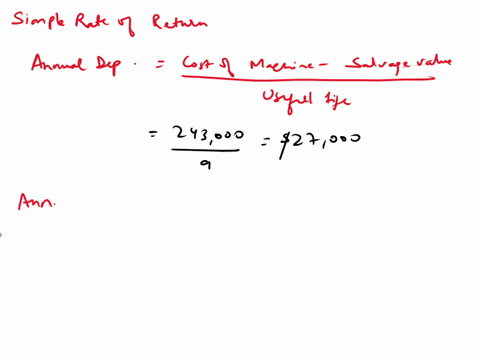 Simple Rate of Return
Annual Dep. = Cost of Machine - Salvage value
Usefull life
= 243,000 = $27,000
9
Ann.